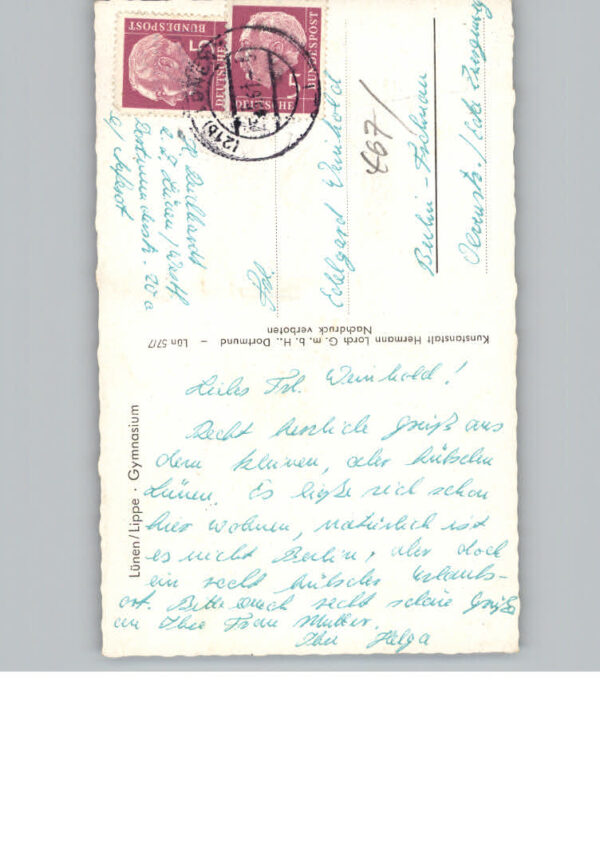 Liebes Frl. Weinhold!
Recht herzliche Grüße aus
dem kleinen, aber hübschen
Lünen. Es ließe sich schon
hier wohnen, natürlich ist
es nicht Berlin, aber doch
ein recht hübscher Urlaubs-
ort. Bitte auch recht schöne Grüße
an Ihre Frau Mutter.
Ihre Helga
Lünen/Lippe · Gymnasium
Kunstanstalt Hermann Lorch G. m. b. H., Dortmund – Lün 57/7
Nachdruck verboten
H.
z. Z. Lünen/Westf.
Dortmunderstr. 20a
Edelgard Weinhold
Berlin-
467/
DEUTSCHE
BUNDESPOST
5
DEUTSCHE
BUNDESPOST
5
(21b)